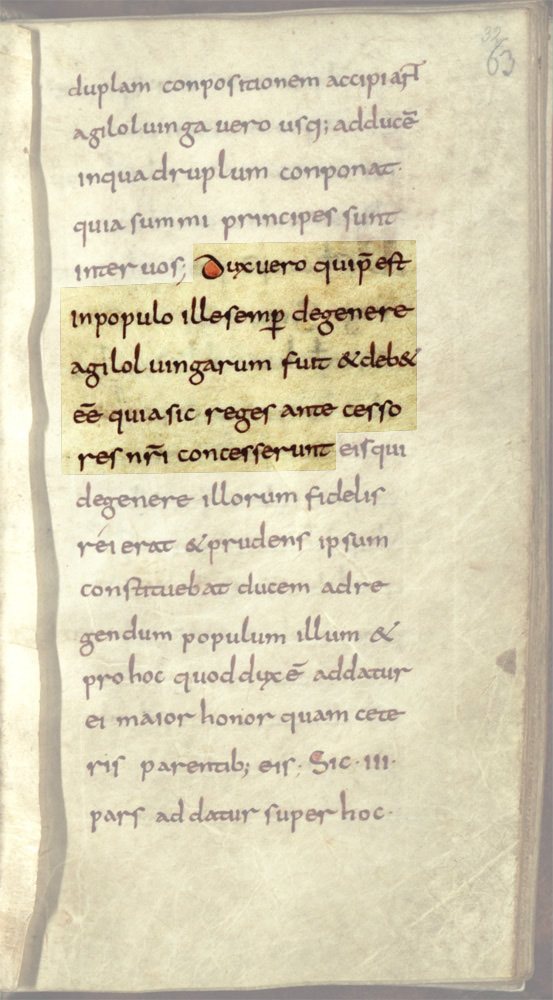 32
63
duplam conpositionem accipiant
agiloluinga vero usq; adducē
inquadruplum conponat·
quia summi principes sunt
inter uos; Dux vero qui p̄est
inpopulo ille semꝑ degenere
agiloluingarum fuit & deb&
ēē quia sic reges ante cesso
res nr̄i concesserunt eis qui
degenere illorum fidelis
rei erat & prudens ipsum
constituebat ducem ad re
gendum populum illum &
pro hoc quod dux ē addatur
ei maior honor quam cete
ris parentib; eis· Sic · III ·
pars addatur super hoc·